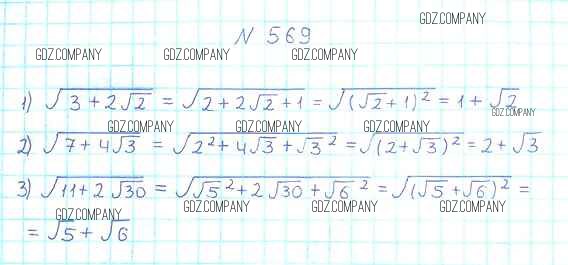 GDZ.COMPANY
N 569
GDZ.COMPANY GDZ.COMPANY GDZ.COMPANY
1) √(3 + 2√2) = √(2 + 2√2 + 1) = √((√2 + 1)²) = 1 + √2
GDZ.COMPANY
GDZ.COMPANY GDZ.COMPANY GDZ.COMPANY
2) √(7 + 4√3) = √(2² + 4√3 + √3²) = √((2 + √3)²) = 2 + √3
3) √(11 + 2√30) = √(√5² + 2√30 + √6²) = √((√5 + √6)²) =
GDZ.COMPANY GDZ.COMPANY GDZ.COMPANY GDZ.COMPANY
= √5 + √6